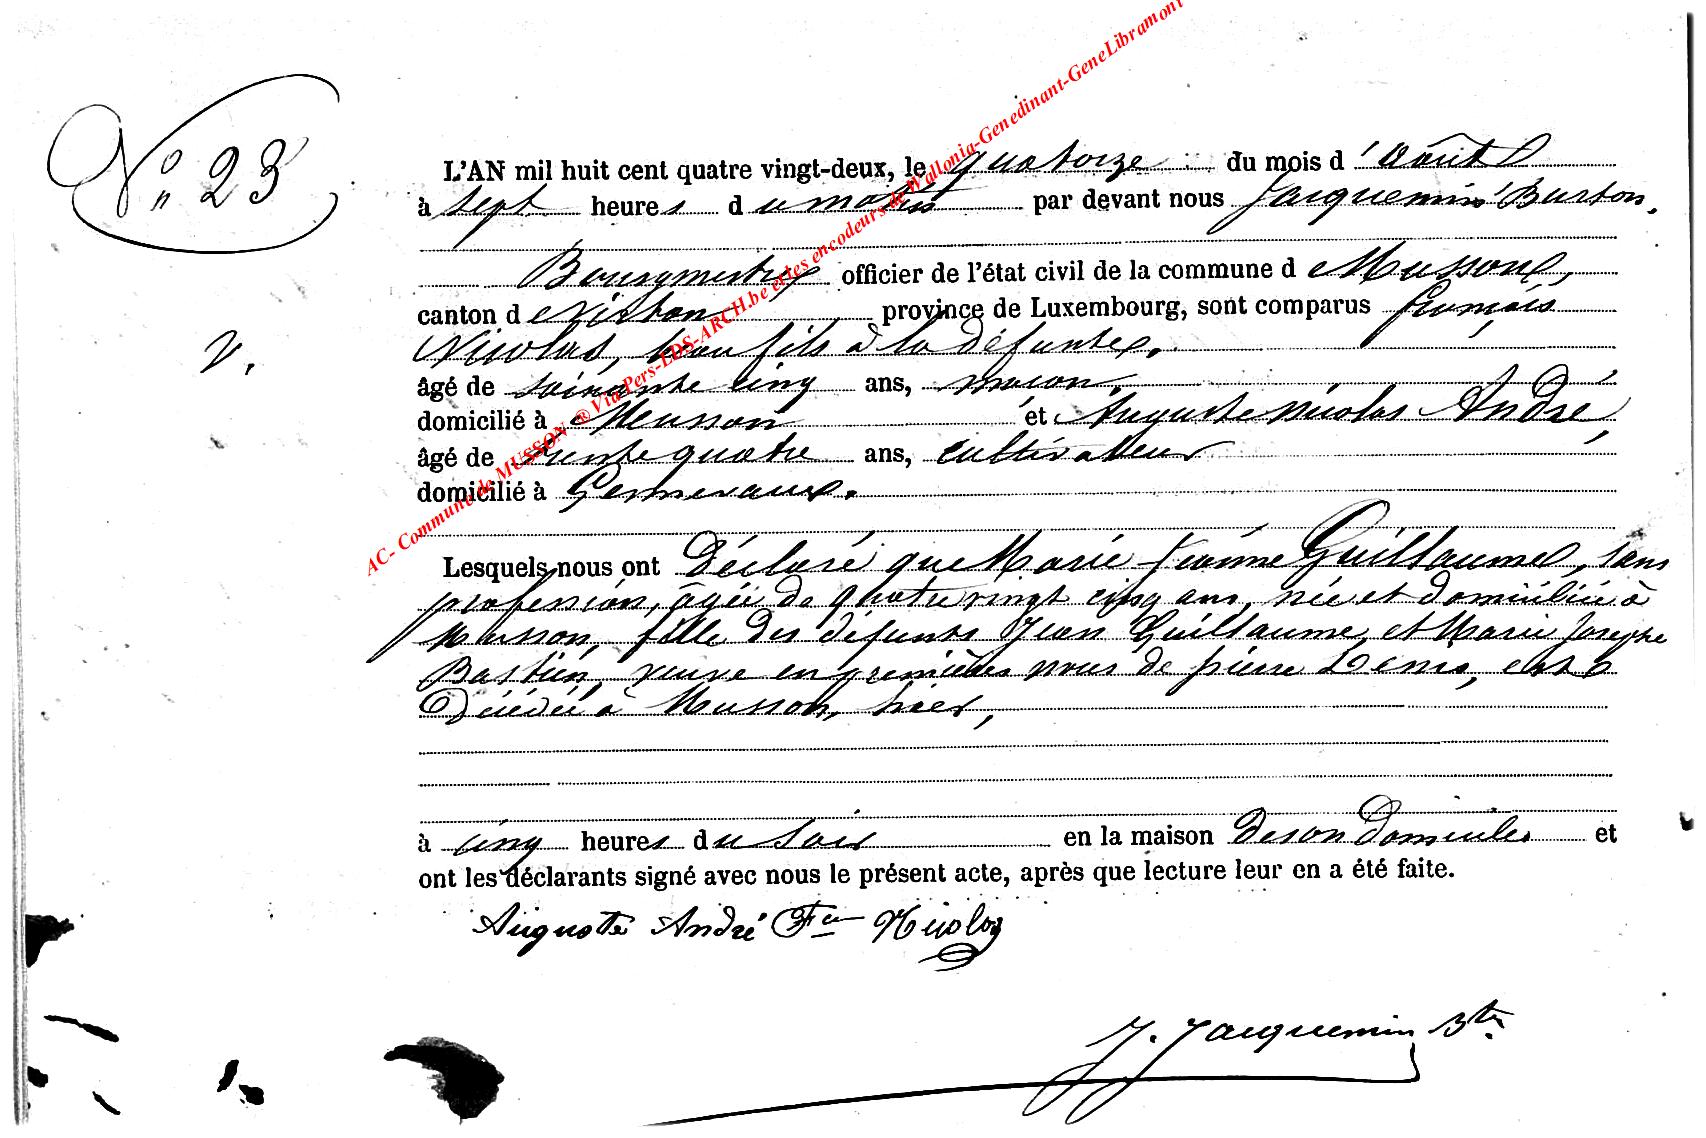 N° 23
L'AN mil huit cent quatre vingt-deux, le quatorze du mois d'Août
à sept heures du matin par devant nous Jacquemin Burton,
Bourgmestre officier de l'état civil de la commune de Musson,
canton de Virton province de Luxembourg, sont comparus françois
Nicolas, beau fils à la défunte,
V.
âgé de soixante cinq ans, maçon,
domicilié à Musson et Auguste Nicolas André,
âgé de trente quatre ans, cultivateur
domicilié à Gennevaux.
Lesquels nous ont Déclaré que Marie Jeanne Guillaume, sans
profession, âgée de quatre vingt cinq ans, née et domiciliée à
Musson, fille des défunts Jean Guillaume, et Marie Josephe
Bastien, veuve en premières noces de pierre Denis, est
Décédée à Musson, hier,
à cinq heures du soir en la maison de son Domicile et
ont les déclarants signé avec nous le présent acte, après que lecture leur en a été faite.
Auguste André Fcis Nicolas
J. Jacquemin Btn
AC- Commune de MUSSON ® Via Pers-LDS-ARCH.be et les encodeurs de Wallonia-Genedinant-GeneLibramont